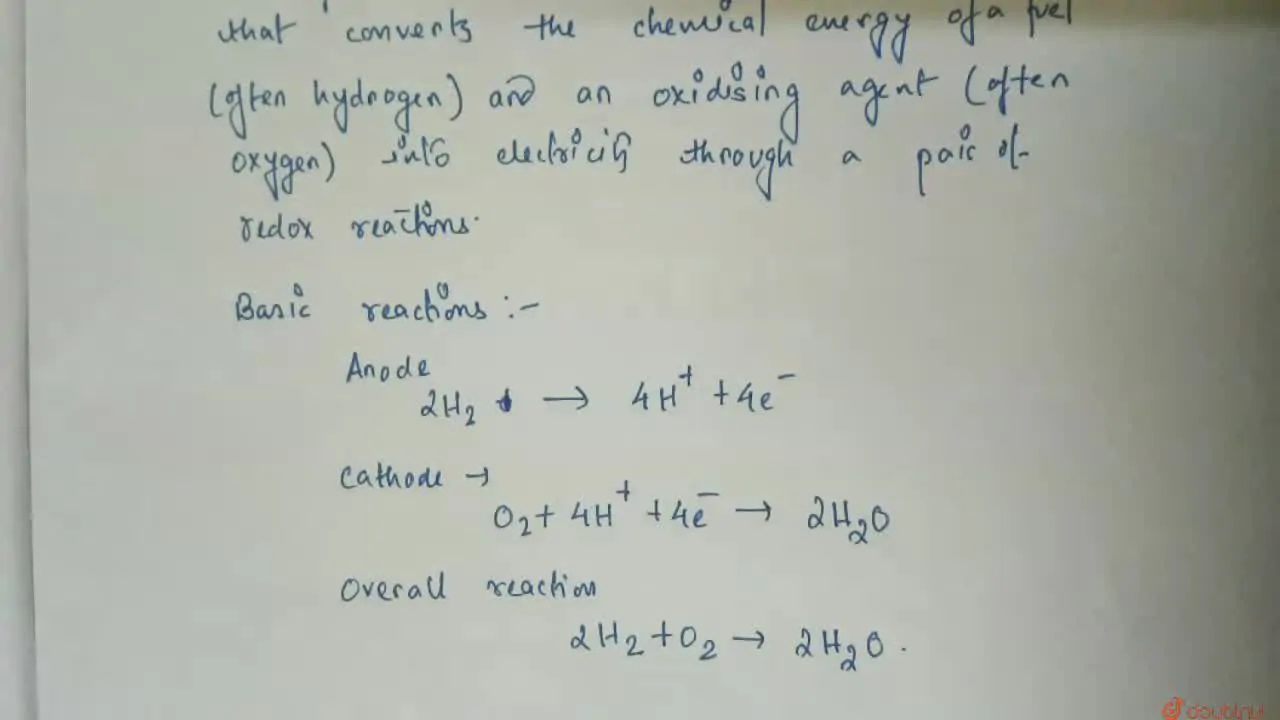 that converts the chemical energy of a fuel
(often hydrogen) and an oxidising agent (often
oxygen) into electricity through a pair of
redox reactions.
Basic reactions :-
Anode
2H₂ → 4H⁺ + 4e⁻
Cathode →
O₂ + 4H⁺ + 4e⁻ → 2H₂O
Overall reaction
2H₂ + O₂ → 2H₂O.
doubtnut